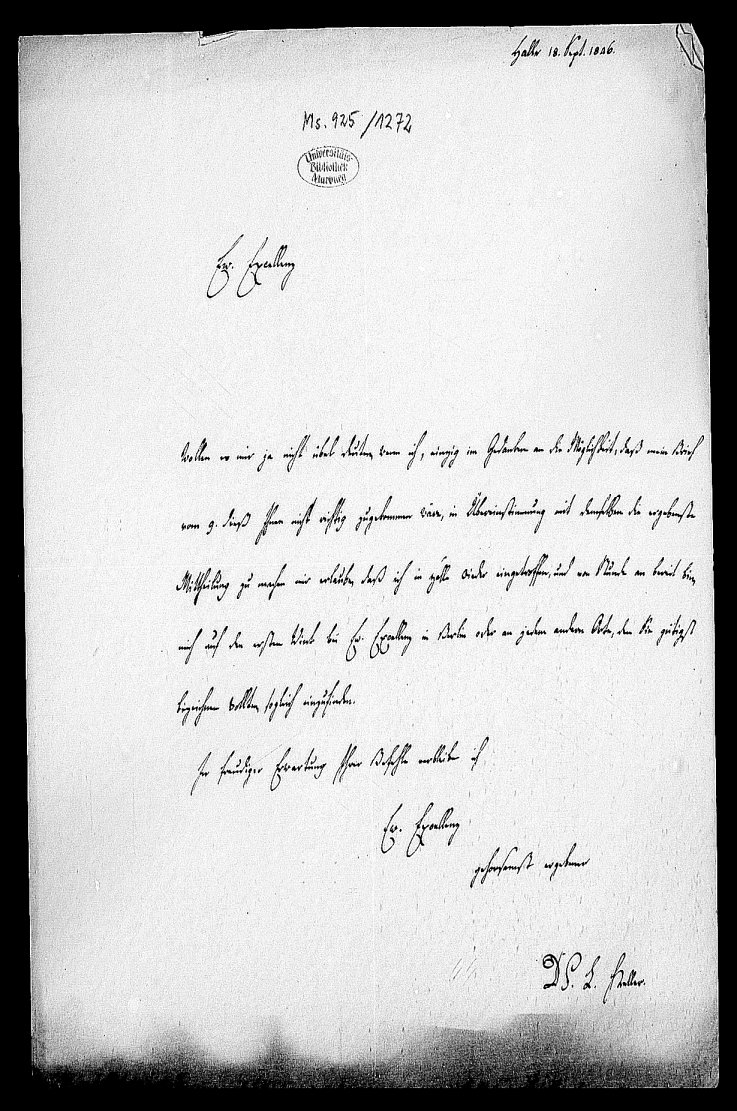 Halle 18. Sept. 1846.
Ms. 925/1272
Universitäts-
Bibliothek
Marburg
Ew. Excellenz
Wollen es mir ja nicht übel deuten, wenn ich, einzig im Gedanken an die Möglichkeit, daß mein Brief
vom 9. dieß Ihnen nicht richtig zugekommen wäre, in Übereinstimmung mit demselben die ergebenste
Mittheilung zu machen mir erlaube, daß ich in Halle wieder eingetroffen, und von Stunde an bereit bin,
mich auf den ersten Wink bei Ew. Excellenz in Berlin oder an jedem andern Orte, den Sie gütigst
bezeichnen wollten, sogleich einzufinden.
In freudiger Erwartung Ihrer Befehle verbleibe ich
Ew. Excellenz
gehorsamst ergebener
D